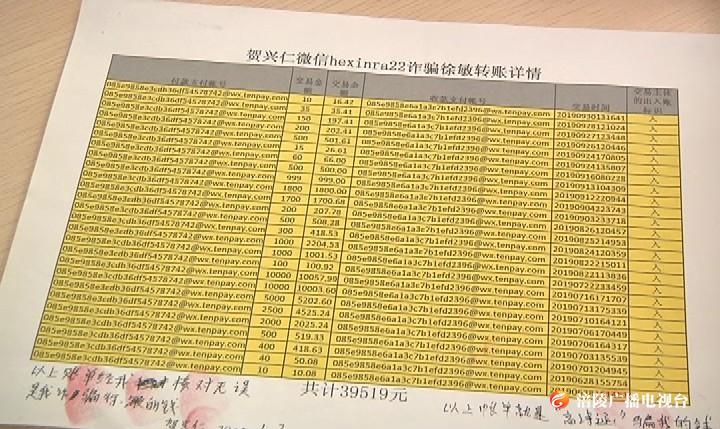 贺兴仁微信hexinra22诈骗徐敏转账详情
付款支付帐号 交易金额 交易余额 收款支付帐号 交易时间 交易主体的出入账标识
085e9858e3cdb36df54578742@wx.tenpay.com 10 16.42 085e9858e6a1a3c7b1efd2396@wx.tenpay.com 20190930131641 入
085e9858e3cdb36df54578742@wx.tenpay.com 35 35.41 085e9858e6a1a3c7b1efd2396@wx.tenpay.com 20190928121024 入
085e9858e3cdb36df54578742@wx.tenpay.com 150 197.41 085e9858e6a1a3c7b1efd2396@wx.tenpay.com 20190927123448 入
085e9858e3cdb36df54578742@wx.tenpay.com 200 202.41 085e9858e6a1a3c7b1efd2396@wx.tenpay.com 20190926120446 入
085e9858e3cdb36df54578742@wx.tenpay.com 500 501.61 085e9858e6a1a3c7b1efd2396@wx.tenpay.com 20190924170805 入
085e9858e3cdb36df54578742@wx.tenpay.com 15 26.61 085e9858e6a1a3c7b1efd2396@wx.tenpay.com 入
085e9858e3cdb36df54578742@wx.tenpay.com 60 66.00 085e9858e6a1a3c7b1efd2396@wx.tenpay.com 20190916080228 入
085e9858e3cdb36df54578742@wx.tenpay.com 500 500.00 085e9858e6a1a3c7b1efd2396@wx.tenpay.com 20190913104309 入
085e9858e3cdb36df54578742@wx.tenpay.com 999 999.00 085e9858e6a1a3c7b1efd2396@wx.tenpay.com 20190912220944 入
085e9858e3cdb36df54578742@wx.tenpay.com 1800 1800.00 085e9858e6a1a3c7b1efd2396@wx.tenpay.com 20190904223743 入
085e9858e3cdb36df54578742@wx.tenpay.com 1700 1700.68 085e9858e6a1a3c7b1efd2396@wx.tenpay.com 20190903233718 入
085e9858e3cdb36df54578742@wx.tenpay.com 200 207.78 085e9858e6a1a3c7b1efd2396@wx.tenpay.com 20190826120457 入
085e9858e3cdb36df54578742@wx.tenpay.com 500 508.28 085e9858e6a1a3c7b1efd2396@wx.tenpay.com 20190825214953 入
085e9858e3cdb36df54578742@wx.tenpay.com 300 418.53 085e9858e6a1a3c7b1efd2396@wx.tenpay.com 20190824120359 入
085e9858e3cdb36df54578742@wx.tenpay.com 1000 2204.53 085e9858e6a1a3c7b1efd2396@wx.tenpay.com 20190822215011 入
085e9858e3cdb36df54578742@wx.tenpay.com 1000 1001.53 085e9858e6a1a3c7b1efd2396@wx.tenpay.com 20190822113836 入
085e9858e3cdb36df54578742@wx.tenpay.com 100 100.92 085e9858e6a1a3c7b1efd2396@wx.tenpay.com 20190722233459 入
085e9858e3cdb36df54578742@wx.tenpay.com 10000 10057.99 085e9858e6a1a3c7b1efd2396@wx.tenpay.com 20190716171707 入
085e9858e3cdb36df54578742@wx.tenpay.com 10000 10003.60 085e9858e6a1a3c7b1efd2396@wx.tenpay.com 20190713175339 入
085e9858e3cdb36df54578742@wx.tenpay.com 5000 5202.60 085e9858e6a1a3c7b1efd2396@wx.tenpay.com 20190711164317 入
085e9858e3cdb36df54578742@wx.tenpay.com 2500 4525.24 085e9858e6a1a3c7b1efd2396@wx.tenpay.com 20190706170449 入
085e9858e3cdb36df54578742@wx.tenpay.com 2000 2025.24 085e9858e6a1a3c7b1efd2396@wx.tenpay.com 20190706164121 入
085e9858e3cdb36df54578742@wx.tenpay.com 500 519.33 085e9858e6a1a3c7b1efd2396@wx.tenpay.com 20190706173339 入
085e9858e3cdb36df54578742@wx.tenpay.com 400 418.63 085e9858e6a1a3c7b1efd2396@wx.tenpay.com 20190703135539 入
085e9858e3cdb36df54578742@wx.tenpay.com 40 50.08 085e9858e6a1a3c7b1efd2396@wx.tenpay.com 20190701204945 入
085e9858e3cdb36df54578742@wx.tenpay.com 10 10.08 085e9858e6a1a3c7b1efd2396@wx.tenpay.com 20190628155754 入
共计39519元
以上账单经我核对无误
是我 骗徐敏的钱
贺兴仁
以上账单就是
骗我的钱
涪陵广播电视台